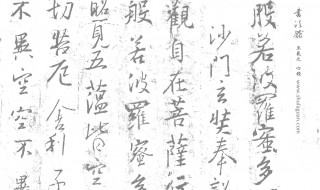 王羲之 心經
般若波羅蜜多
沙門玄奘奉
觀自在菩薩行
般若波羅蜜多
照見五蘊皆空
切苦厄舍利子
不異空空不異